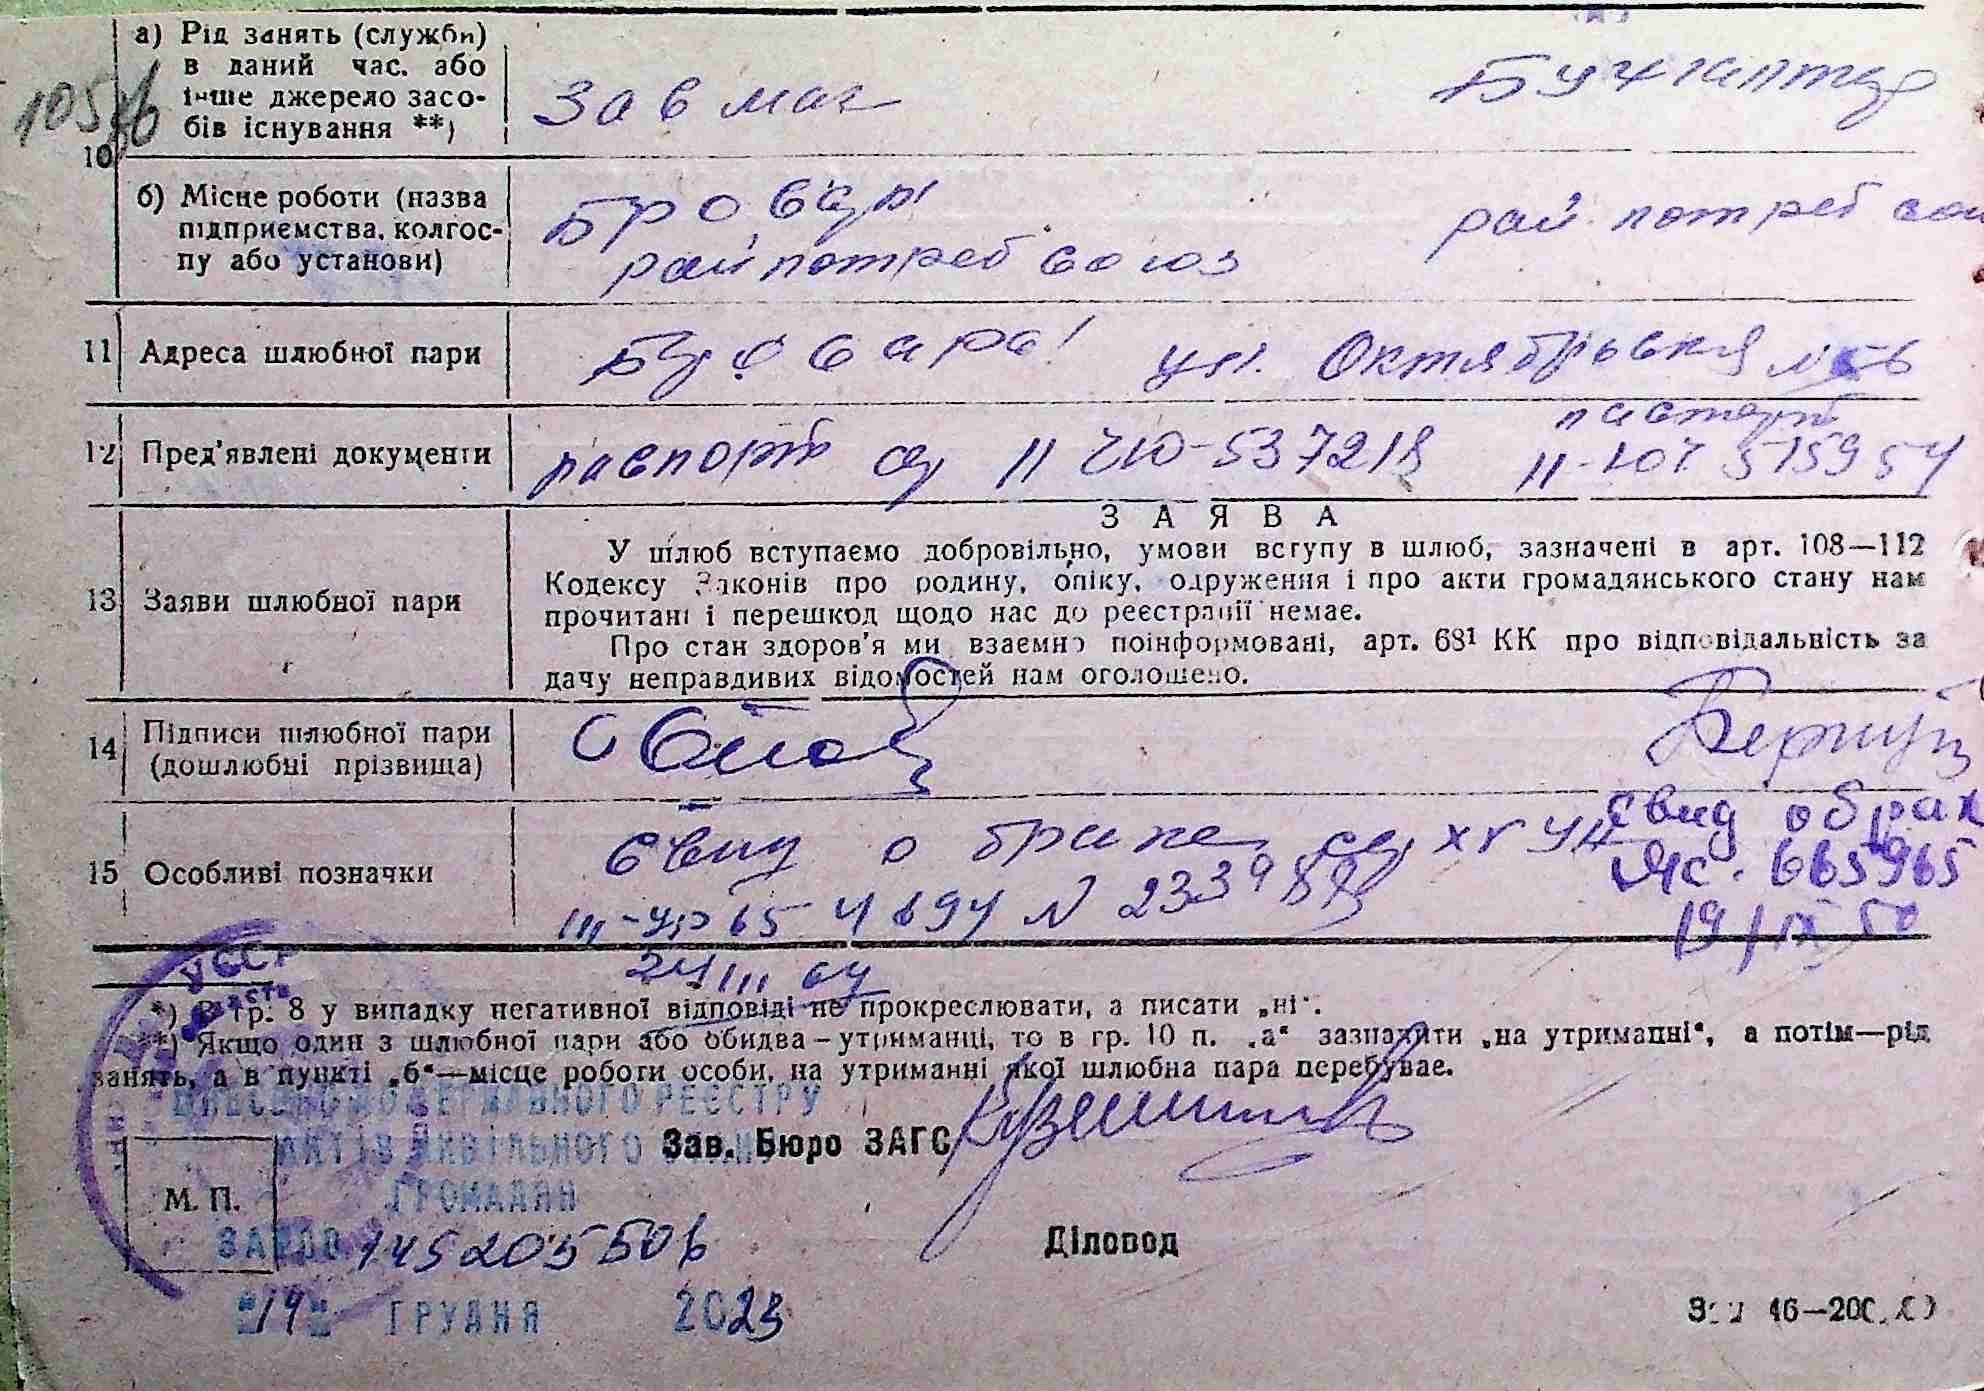 105
а) Рід занять (служби)
в даний час. або
інше джерело засо-
бів існування **)
Зав маг
Бухгалтер
10
б) Місце роботи (назва
підприємства, колгос-
пу або установи)
Бровар
райпотребсоюз
райпотребсою
11 Адреса шлюбної пари
Бровары ул. Октябрьская
12 Пред'явлені документи
паспорт II ЧЮ-537218
паспорт
II-ЮЧ 515954
13 Заяви шлюбної пари
ЗАЯВА
У шлюб вступаємо добровільно, умови вступу в шлюб, зазначені в арт. 108—112
Кодексу Законів про родину, опіку, одруження і про акти громадянського стану нам
прочитані і перешкод щодо нас до реєстрації немає.
Про стан здоров'я ми взаємно поінформовані, арт. 68¹ КК про відповідальність за
дачу неправдивих відомостей нам оголошено.
14 Підписи шлюбної пари
(дошлюбні прізвища)
15 Особливі позначки
свид о браке
свид о брак
665965
19/IX 50
24 III
*) В гр. 8 у випадку негативної відповіді не прокреслювати, а писати „ні".
**) Якщо один з шлюбної пари або обидва – утриманці, то в гр. 10 п. „а" зазначити „на утриманні", а потім—рід
занять, а в пункті „б"—місце роботи особи, на утриманні якої шлюбна пара перебуває.
УССР
ВНЕСЕНО ДО ДЕРЖАВНОГО РЕЄСТРУ
АКТІВ ЦИВІЛЬНОГО СТАНУ
ГРОМАДЯН
Зав. Бюро ЗАГС
М. П.
145205506
Діловод
"14" ГРУДНЯ 2023